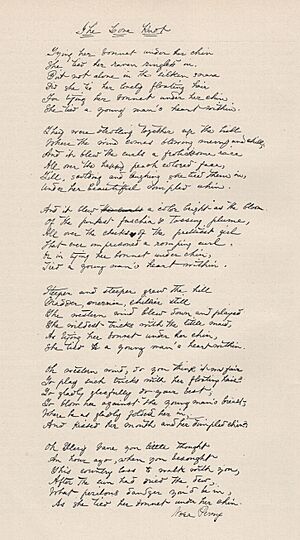 The Love Knot
Tying her bonnet under her chin
She tied her raven ringlets in.
But not alone in the silken snare
Did she tie her lovely floating hair
For tying her bonnet under her chin.
She tied a young man's heart within.
They were strolling together up the hill
Where the wind comes blowing merry and chill,
And it blew the curls a frolicsome race
All over the happy peach colored face,
Till, scolding and laughing she tied them in,
Under her beautiful dimpled chin.
And it blew a color bright as the bloom
Of the pinkest fuschia's tossing plume,
All over the cheeks of the prettiest girl
That ever imprisoned a romping curl.
Or in tying her bonnet under her chin,
Tied a young man's heart within.
Steeper and steeper grew the hill
Madder, merrier, chillier still
The western wind blew down and played
The wildest tricks with the little maid,
As tying her bonnet under her chin,
She tied a young man's heart within.
Oh western wind, do you think it was fair
To play such tricks with her floating hair?
To gladly gleefully do your best,
To blow her against the young man's breast,
Where he as gladly folded her in,
And kissed her mouth and her dimpled chin.
Oh Ellery Vane you little thought
An hour ago, when you besought
This country lass to walk with you,
After the sun had dried the dew,
What perilous danger you'd be in,
As she tied her bonnet under her chin.
Nora Perry